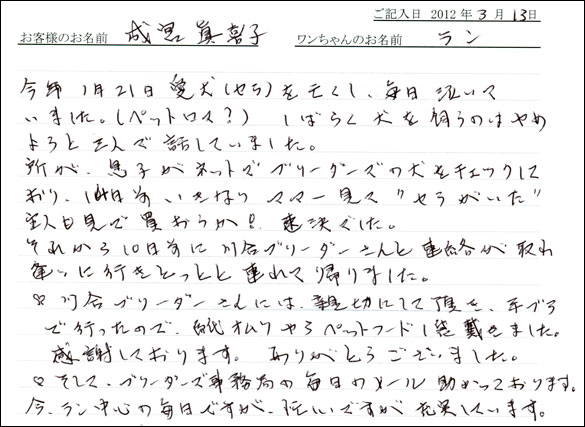 ご記入日 2012年 3月 13日
お客様のお名前 成宮 眞喜子 ワンちゃんのお名前 ラン
今年1月21日愛犬(セラ)を亡くし、毎日泣いて
いました。(ペットロス?) しばらく犬を飼うのはやめ
ようと三人で話していました。
所が、息子がネットでブリーダーズの犬をチェックして
おり、14日前いきなりママー見て"セラがいた"
主人も見て買おうか!速決でした。
それから10日前に川合ブリーダーさんと連絡が取れ
逢いに行きとっとと連れて帰りました。
♡川合ブリーダーさんには、親切にして頂き、手ブラ
で行ったので、紙オムツやらペットフード1袋戴きました。
感謝しております。ありがとうございました。
♡そして、ブリーダーズ事務局の毎日のメール助かっております。
今、ラン中心の毎日ですが、忙しいですが充実しています。